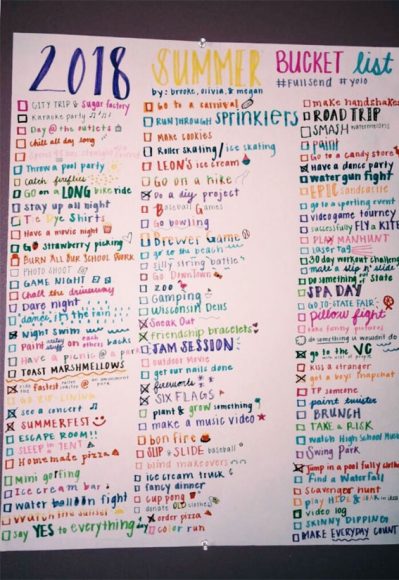 2018 SUMMER BUCKET list
by: brooke, olivia, & megan
#fullsend #yolo
CITY TRIP & sugar factory
Karaoke party
Day @ the outlets
chill all day long
Throw a pool party
catch fireflies
GO on a LONG bike ride
stay up all night
Tie Dye Shirts
Have a movie night
GO strawberry picking
BURN ALL OUR SCHOOL WORK
PHOTO SHOOT
GAME NIGHT
Chalk the driveway
Dare night
dance in the rain
Night swim
Paint on each others backs
Have a picnic @ a park
TOAST MARSHMELLOWS
GO ZIP-LINING
see a concert
SUMMERFEST
ESCAPE ROOM!!
SLEEP IN TENT
Homemade pizza
Mini golfing
Ice cream bar
water balloon fight
Watch the sunset
say YES to everything day
Go to a carnival
RUN THROUGH sprinklers
Make cookies
Roller skating/ice skating
LEON'S ice cream
Go on a hike
Do a diy project
Baseball Games
Go bowling
Brewer Game
Go to the beach
silly string battle
Go Downtown
ZOO
Camping
Wisconsin Dells
Sneak Out
friendship bracelets
JAM SESSION
outdoor Movie
get our nails done
fireworks
SIX FLAGS
plant & grow something
make a music video
bon fire
SLIP & SLIDE baseball
blind makeovers
ice cream truck
fancy dinner
cup pong
donate OLD clothes
order pizza
color run
make handshakes
ROAD TRIP
SMASH watermelons
paint
Go to a candy store
Have a dance party
water gun fight
EPIC sandcastle
go to a sporting event
videogame tourney
successfully FLY a KITE
PLAY MANHUNT
laser tag
30 day workout challenge
make a slip n' slide
Do something @ State
SPA DAY
GO TO STATE FAIR
pillow fight
take funny pictures
do something u wouldnt do
go to the VC
kiss a stranger
get a boys snapchat
TP someone
paint twister
BRUNCH
TAKE a RISK
watch High School Musical
Swing Park
Jump in a pool fully clothed
Find a Waterfall
scavenger hunt
play HIDE & SEEK in
video log
SKINNY DIPPING
MAKE EVERYDAY COUNT